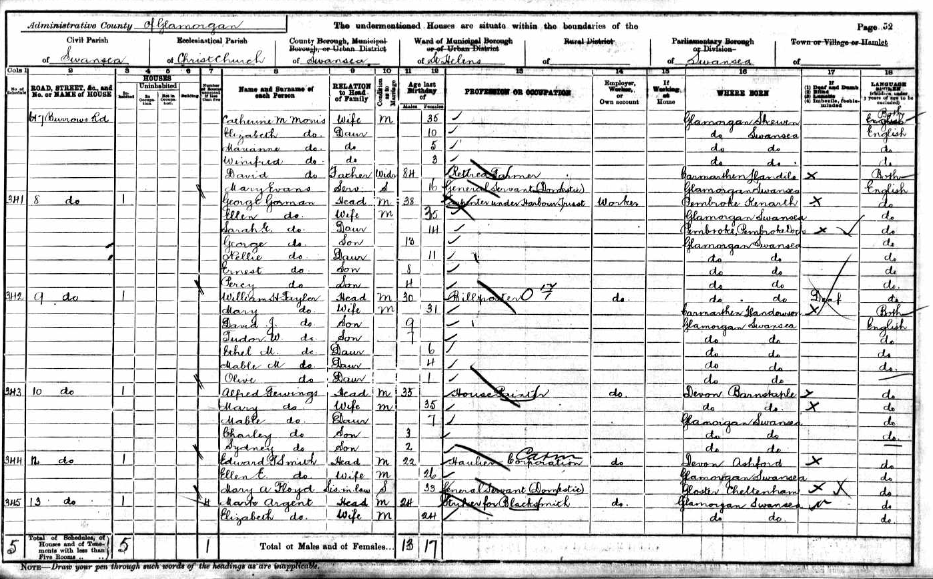 Administrative County of Glamorgan The undermentioned Houses are situate within the boundaries of the Page 32
Civil Parish Ecclesiastical Parish County Borough, Municipal Borough, or Urban District Ward of Municipal Borough or of Urban District Rural District Parliamentary Borough or Division Town or Village or Hamlet
of Swansea of Christ Church of Swansea of St Helens of of Swansea of
Cols 1 2 3 4 5 6 7 8 9 10 11 12 13 14 15 16 17 18
ROAD, STREET, &c., and No. or NAME of HOUSE HOUSES Uninhabited Name and Surname of each Person RELATION to Head of Family Age last Birthday of PROFESSION OR OCCUPATION Employer, Worker, or Own account If Working at Home WHERE BORN
Males Females
Burrows Rd Catherine M Morris Wife M 35 Glamorgan Skewen Both
Elizabeth do Daur 10 do Swansea English
Marianne do do 5 do do do
Winifred do do 3 do do do
David do Father 84 Retired Farmer Carmarthen Llandilo Both
Mary Evans Serv S 16 General Servant (Domestic) Glamorgan Swansea English
341 8 do 1 George Gorman Head M 38 Carpenter under Harbour Trust Worker Pembroke Kenarth do
Ellen do Wife M 35 Glamorgan Swansea do
Sarah E. do Daur 14 Pembroke, Pembroke Dock do
George do Son 13 Glamorgan Swansea do
Nellie do Daur 11 do do do
Ernest do Son 8 do do do
Percy do Son 4 do do do
342 9 do 1 William H Taylor Head M 30 Billposter do do do Deaf do
Mary do Wife M 31 Carmarthen Both
David J. do Son 9 Glamorgan Swansea English
Tudor W do Son 7 do do do
Ethel M. do Daur 6 do do do
Mable M do Daur 4 do do do
Olive do Daur 1 do do do
343 10 do 1 Alfred Head M 35 House Painter do Devon Barnstaple do
Mary do Wife M 35 do do do
Mable do Daur 7 Glamorgan Swansea do
Charley do Son 3 do do do
Sydney do Son 2 do do do
344 12 do 1 Edward Smith Head M 22 Haulier Corporation do Devon Ashford do
Ellen E do Wife M 26 Glamorgan Swansea do
Mary A Floyd Sis-in-law S 33 General Servant (Domestic) Gloster Cheltenham do
345 13 do 1 4 Argent Head M 24 Striker for Blacksmith do Glamorgan Swansea do
Elizabeth do Wife M 24 do do do
5 Total of Schedules, of Houses and of Tenements with less than Five Rooms 5 1 Total of Males and of Females... 13 17
NOTE—Draw your pen through such words of the headings as are inapplicable.